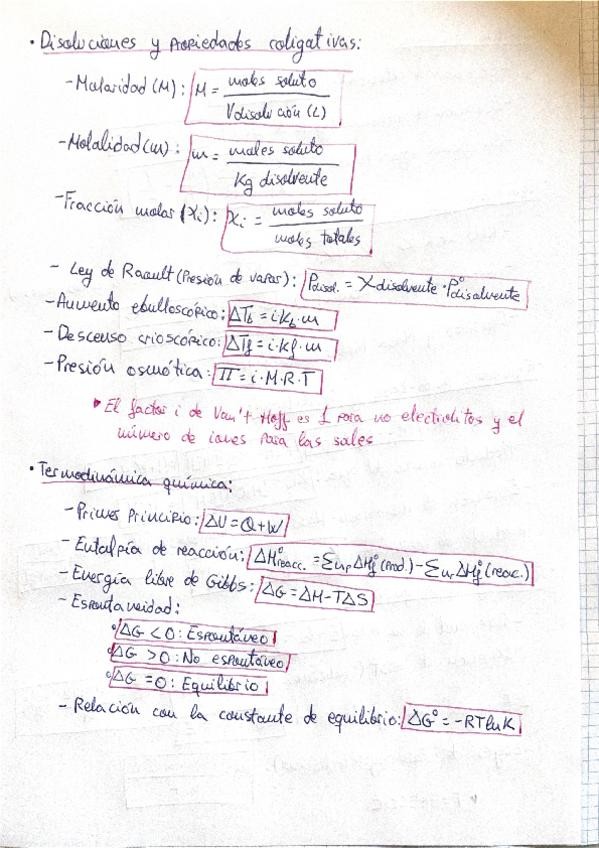 • Disoluciones y propiedades coligativas:
- Molaridad (M): M = moles soluto / V disolución (L)
- Molalidad (m): m = moles soluto / Kg disolvente
- Fracción molar (Xi): Xi = moles soluto / moles totales
- Ley de Raoult (Presión de vapor): Pdisol. = Xdisolvente · P°disolvente
- Aumento ebulloscópico: ΔTb = i·Kb·m
- Descenso crioscópico: ΔTf = i·Kf·m
- Presión osmótica: Π = i·M·R·T
• El factor i de Van't Hoff es 1 para no electrolitos y el
número de iones para las sales
• Termodinámica química:
- Primer Principio: ΔU = Q + W
- Entalpía de reacción: ΔH°reacc. = Σnp ΔHf°(prod.) - Σnr ΔHf°(reac.)
- Energía libre de Gibbs: ΔG = ΔH - TΔS
- Espontaneidad:
• ΔG < 0: Espontáneo
• ΔG > 0: No espontáneo
• ΔG = 0: Equilibrio
- Relación con la constante de equilibrio: ΔG° = -RT ln K